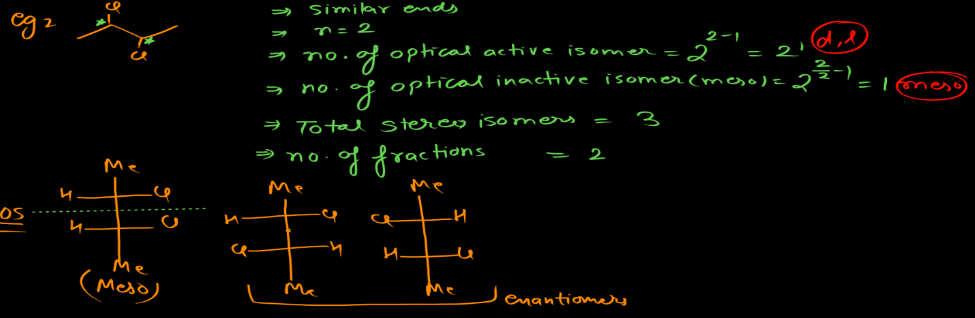 eg 2
Cl
*
*
Cl
⇒ Similar ends
⇒ n = 2
⇒ no. of optical active isomer = 2^{2-1} = 2^1 (d,l)
⇒ no. of optical inactive isomer (meso) = 2^{2/2 -1} = 1 (meso)
⇒ Total stereo isomers = 3
⇒ no. of fractions = 2
Me Me Me
H Cl H Cl Cl H
OS
H Cl Cl H H Cl
Me Me Me
(Meso)
enantiomers